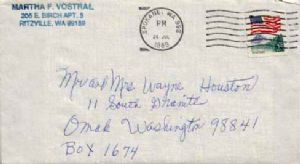 MARTHA F. VOSTRAL
305 E. BIRCH APT. 5
RITZVILLE, WA 99169
SPOKANE, WA 992
PM
24 JUL
1985
Mr and Mrs. Wayne Houston
11 South Granite
Omak Washington 98841
Box 1674